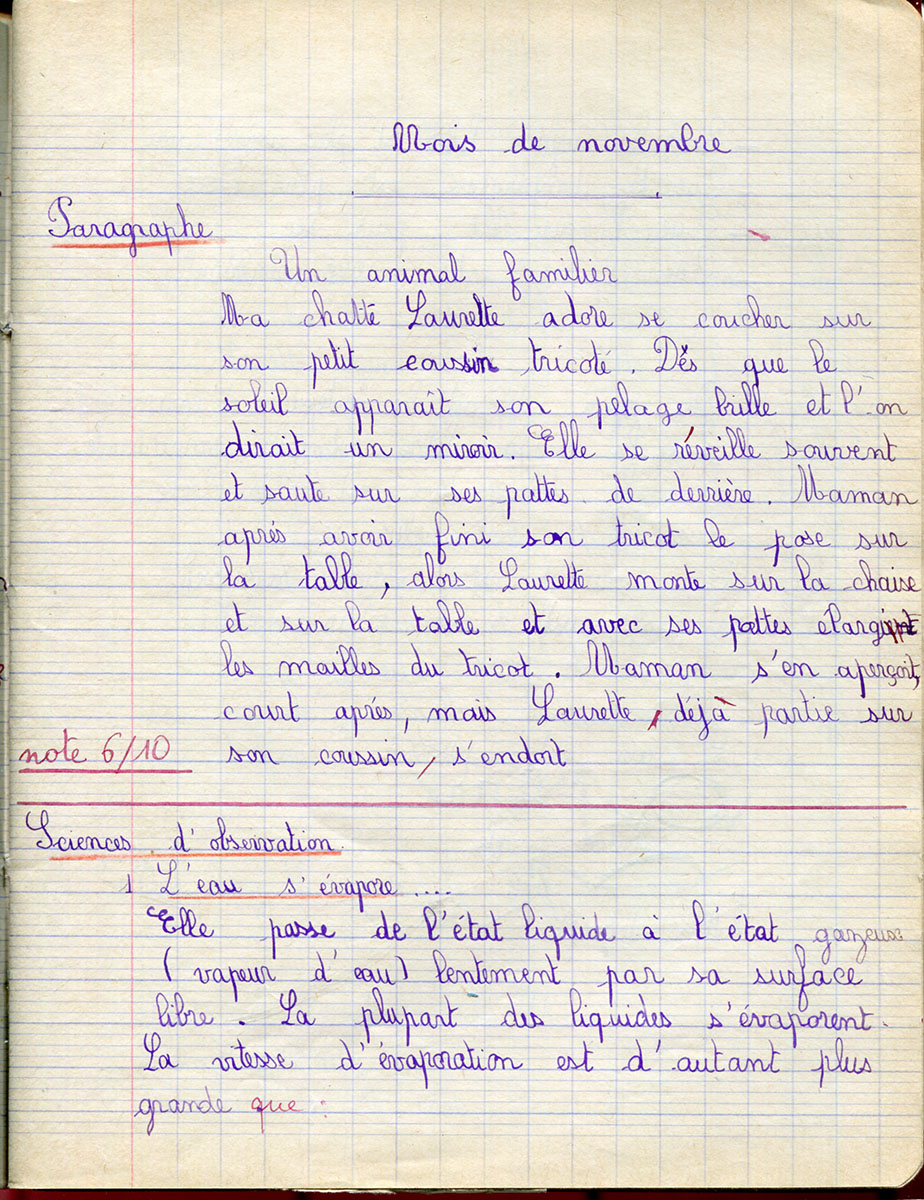 Mois de novembre
Paragraphe
Un animal familier
Ma chatte Laurette adore se coucher sur
son petit coussin tricoté. Dès que le
soleil apparaît son pelage brille et l'on
dirait un miroir. Elle se réveille souvent
et saute sur ses pattes de derrière. Maman
aprés avoir fini son tricot le pose sur
la table, alors Laurette monte sur la chaise
et sur la table et avec ses pattes elargit
les mailles du tricot. Maman s'en aperçoit,
court aprés, mais Laurette, déjà partie sur
note 6/10 son coussin, s'endort
Sciences d'observation
1 L'eau s'évapore ....
Elle passe de l'état liquide à l'état gazeux
(vapeur d'eau) lentement par sa surface
libre. La plupart des liquides s'évaporent.
La vitesse d'évaporation est d'autant plus
grande que :